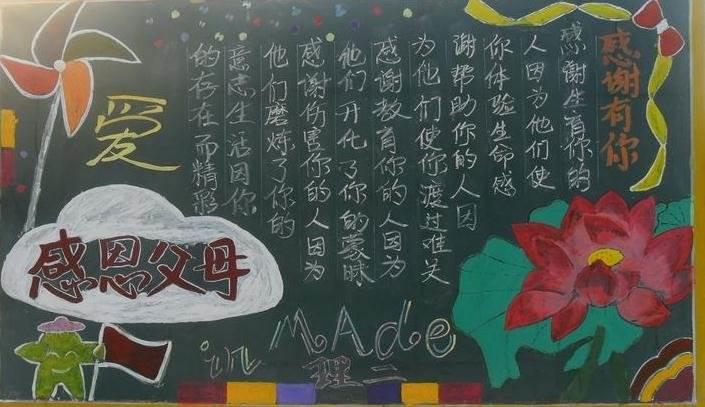 感谢有你
感谢生育你的
人因为他们使
你体验生命感
谢帮助你的人因
为他们使你渡过难关
感谢教育你的人因为
他们开化了你的蒙昧
感谢伤害你的人因为
他们磨炼了你的
意志生活因你
的存在而精彩
爱
感恩父母
MAde
理二